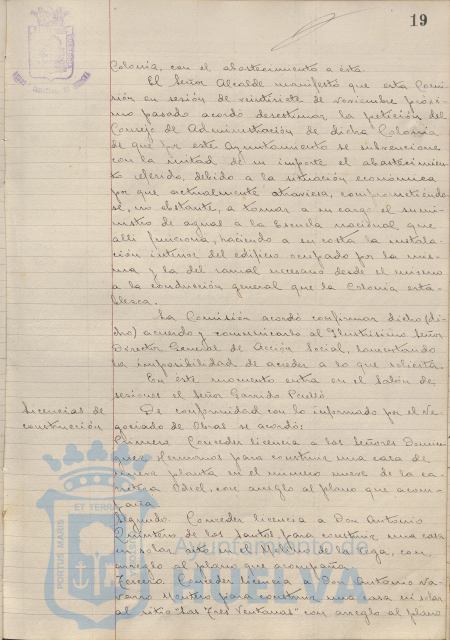 19
Colonia, con el abastecimiento a ésta.
El Señor Alcalde manifestó que esta Comi-
sión en sesión de veintisiete de noviembre próxi-
mo pasado acordó desestimar la petición del
Consejo de Administración de dicha Colonia
de que por este Ayuntamiento se subvencione
con la mitad de su importe el abastecimien-
to referido, debido a la situación económica
por que actualmente atraviesa, comprometiéndo-
se, no obstante, a tomar a su cargo el sumi-
nistro de agua a la Escuela nacional que
allí funciona, haciendo a su costa la instala-
ción interior del edificio ocupado por la mis-
ma y la del ramal necesario desde el mismo
a la conducción general que la Colonia esta-
blezca.
La Comisión acordó confirmar dicho (di-
cho) acuerdo y comunicarlo al Ilustrísimo Señor
Director General de Acción Social, lamentando
la imposibilidad de acceder a lo que solicita.
En este momento entra en el Salón de
sesiones el Señor Garrido Perelló
Licencias de
construcción
De conformidad con lo informado por el Ne-
gociado de Obras se acordó:
Primero. Conceder licencia a los Señores Domin-
guez Hermanos para construir una casa de
nueva planta en el número nueve de la ca-
rretera Odiel, con arreglo al plano que acom-
paña.
Segundo. Conceder licencia a Don Antonio
Quintero de los Santos para construir una casa
en solar sito en el Molino de la Vega, con
arreglo al plano que acompaña.
Tercero. Conceder licencia a Don Antonio Na-
varro Montero para construir una casa en solar
al sitio "Las Tres Ventanas" con arreglo al plano
PORTUS MARIS
ET TERRAE
Ayuntamiento de
HUELVA